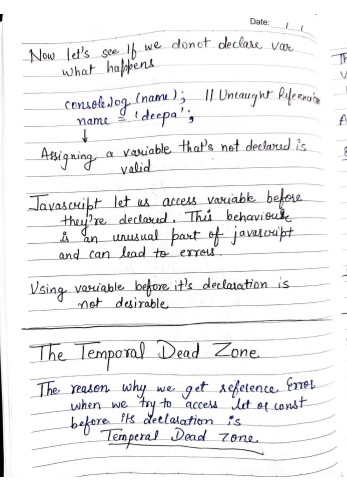 Date:
Now let's see If we donot declare var
what happens
console.log (name); // Uncaught Reference
name = 'deepa';
Assigning a variable that's not declared is
valid
Javascript let us access variable before
they're declared. This behaviour
is an unusual part of javascript
and can lead to errors.
Using variable before it's declaration is
not desirable
The Temporal Dead Zone
The reason why we get reference Error
when we try to access let or const
before its declaration is
Temperal Dead Zone